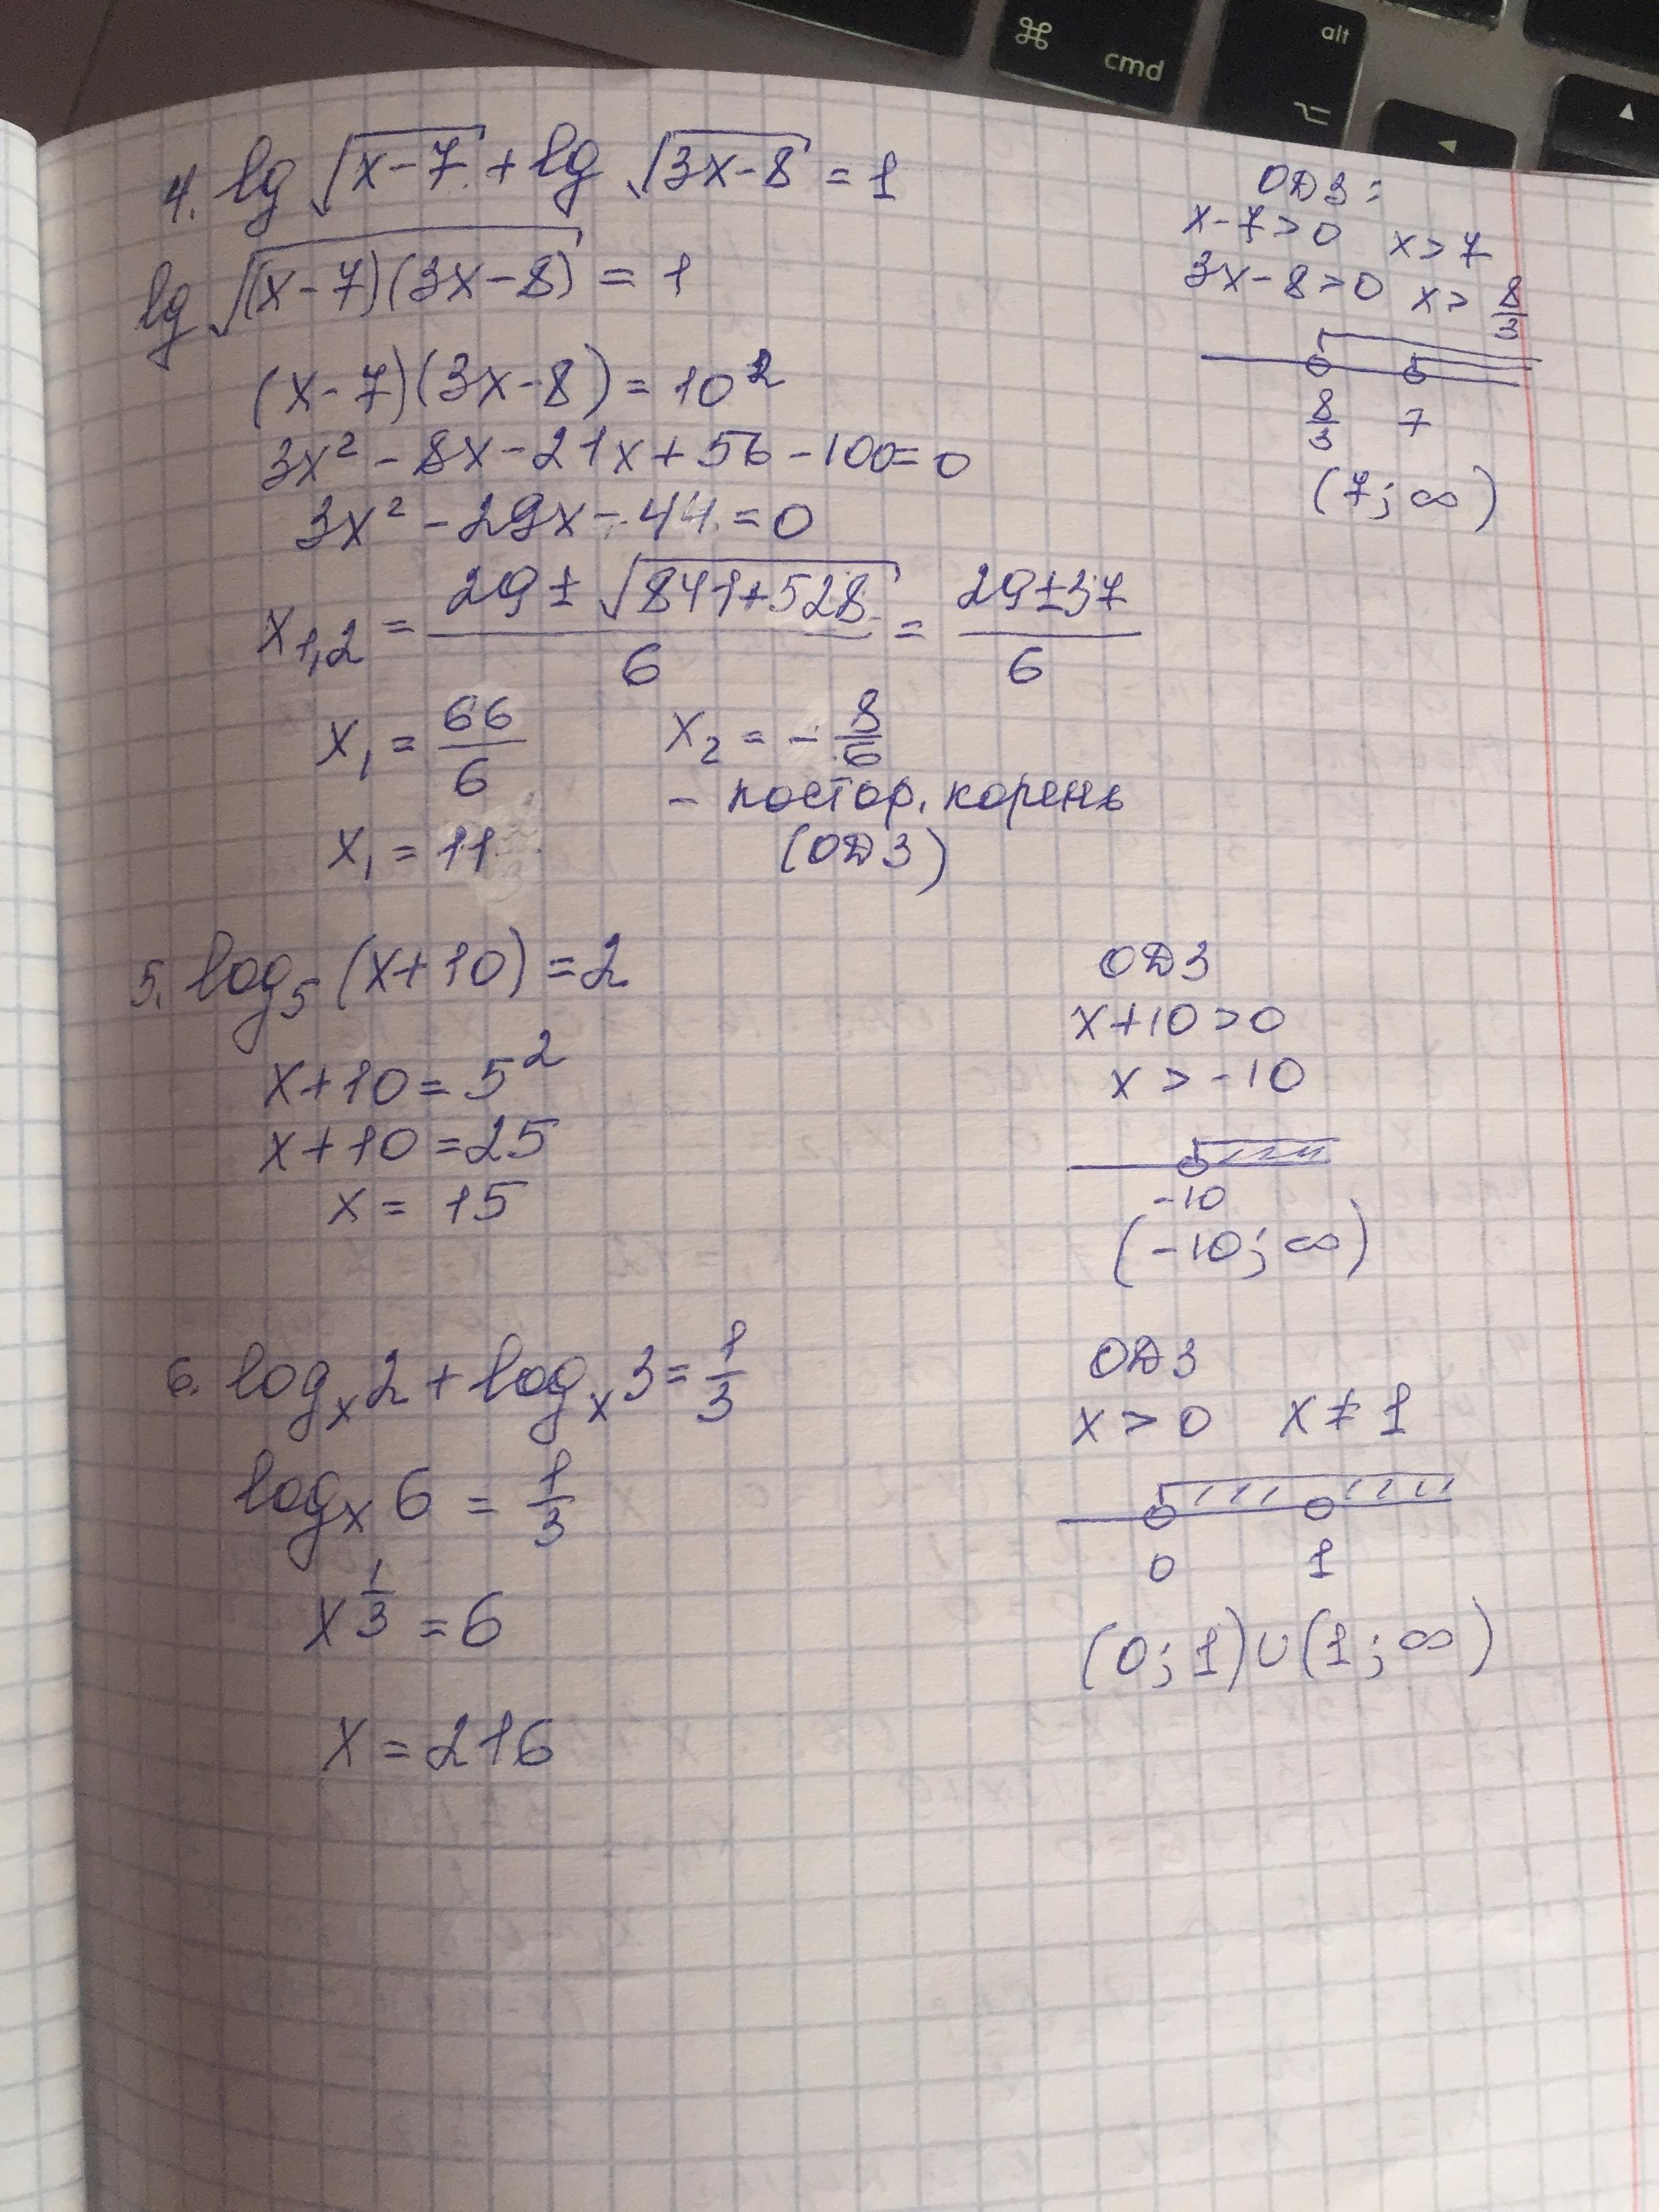 cmd
alt
4. lg √(x-7) + lg √(3x-8) = 1
lg √((x-7)(3x-8)) = 1
(x-7)(3x-8) = 10²
3x² - 8x - 21x + 56 - 100 = 0
3x² - 29x - 44 = 0
x₁,₂ = (29 ± √(841+528))/6 = (29±37)/6
x₁ = 66/6    x₂ = - 8/6
- постор. корень
x₁ = 11    (ОДЗ)
ОДЗ:
x-7>0    x>7
3x-8>0    x > 8/3
8/3    7
(7; ∞)
5. log₅ (x+10) = 2
x+10 = 5²
x+10 = 25
x = 15
ОДЗ
x+10>0
x > -10
-10
(-10; ∞)
6. logₓ 2 + logₓ 3 = 1/3
logₓ 6 = 1/3
x^(1/3) = 6
x = 216
ОДЗ
x > 0    x ≠ 1
0    1
(0; 1)∪(1; ∞)